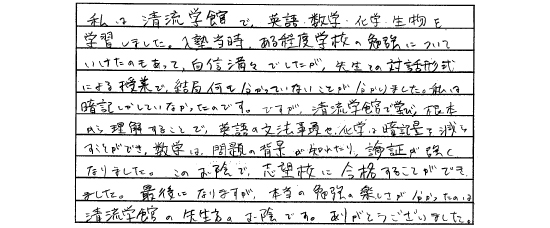 私は清流学館で、英語・数学・化学・生物を
学習しました。入塾当時、ある程度学校の勉強について
いけたのもあって、自信満々でしたが、先生との対話形式
による授業で、結局何も分かっていないことが分かりました。私は
暗記しかしていなかったのです。ですが、清流学館で学び、根本
から理解することで、英語の文法事項や、化学は暗記量を減ら
すことができ、数学は、問題の背景が知れたり、論証が強く
なりました。このお陰で、志望校に合格することができ
ました。最後になりますが、本当の勉強の楽しさが分かったのは
清流学館の先生方のお陰です。ありがとうございました。